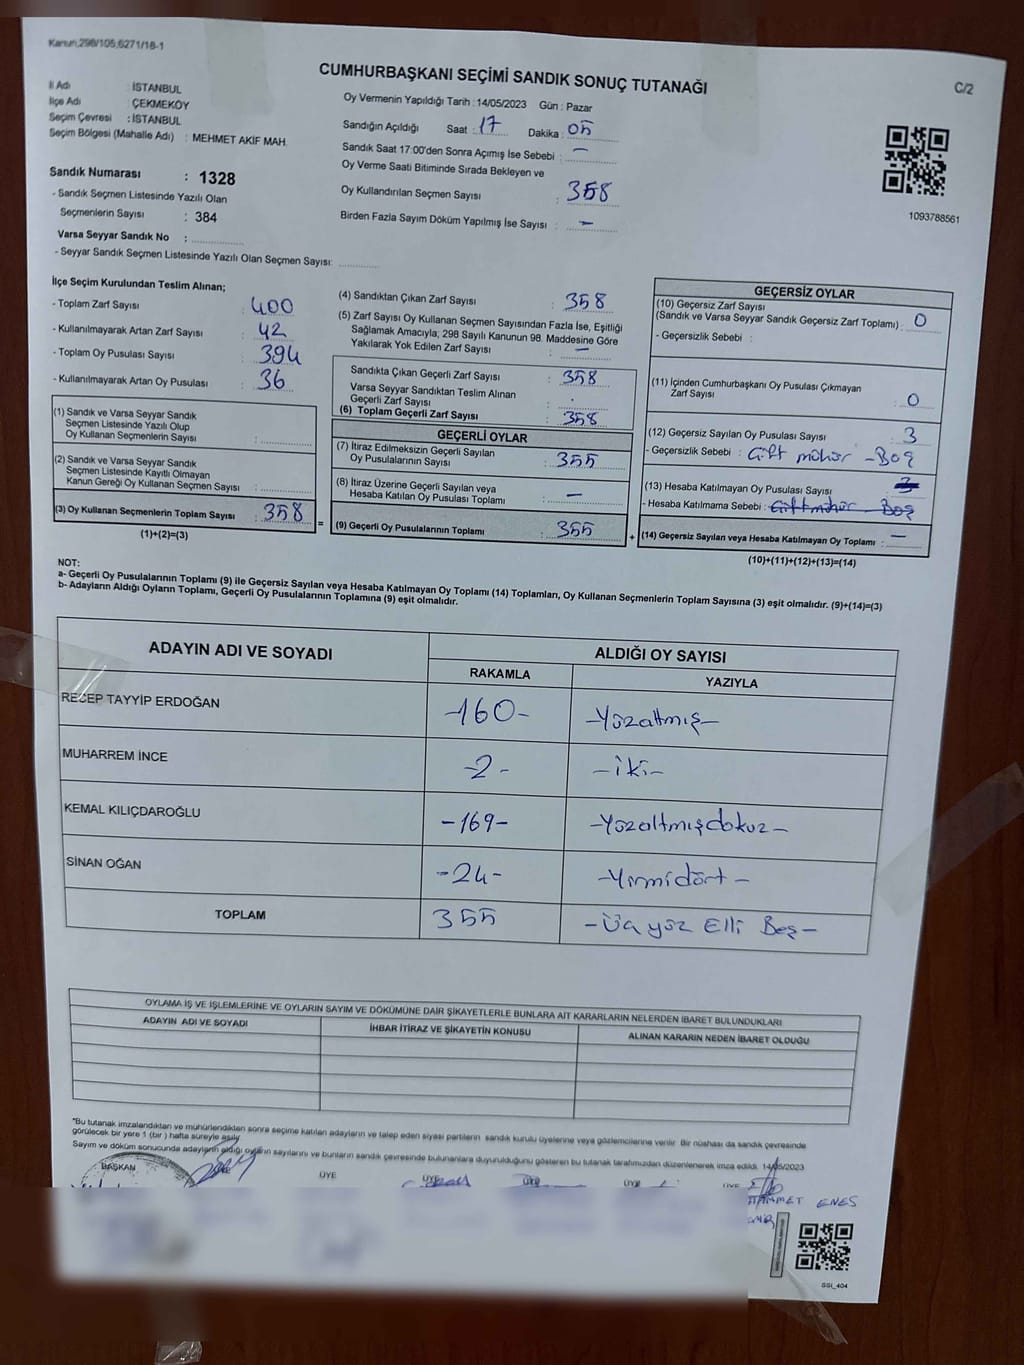 Kanun,298/105,6271/18-1
CUMHURBAŞKANI SEÇİMİ SANDIK SONUÇ TUTANAĞI
C/2
İl Adı : İSTANBUL
İlçe Adı : ÇEKMEKÖY
Seçim Çevresi : İSTANBUL
Seçim Bölgesi (Mahalle Adı) : MEHMET AKİF MAH.
Sandık Numarası : 1328
- Sandık Seçmen Listesinde Yazılı Olan
Seçmenlerin Sayısı : 384
Varsa Seyyar Sandık No :
- Seyyar Sandık Seçmen Listesinde Yazılı Olan Seçmen Sayısı:
Oy Vermenin Yapıldığı Tarih : 14/05/2023 Gün : Pazar
Sandığın Açıldığı Saat : 17 Dakika : 05
Sandık Saat 17:00'den Sonra Açımış İse Sebebi : -
Oy Verme Saati Bitiminde Sırada Bekleyen ve
Oy Kullandırılan Seçmen Sayısı : 358
Birden Fazla Sayım Döküm Yapılmış İse Sayısı : -
1093788561
İlçe Seçim Kurulundan Teslim Alınan;
- Toplam Zarf Sayısı : 400
- Kullanılmayarak Artan Zarf Sayısı : 42
- Toplam Oy Pusulası Sayısı : 394
- Kullanılmayarak Artan Oy Pusulası : 36
(1) Sandık ve Varsa Seyyar Sandık
Seçmen Listesinde Yazılı Olup
Oy Kullanan Seçmenlerin Sayısı :
(2) Sandık ve Varsa Seyyar Sandık
Seçmen Listesinde Kayıtlı Olmayan
Kanun Gereği Oy Kullanan Seçmen Sayısı :
(3) Oy Kullanan Seçmenlerin Toplam Sayısı : 358
(1)+(2)=(3)
(4) Sandıktan Çıkan Zarf Sayısı : 358
(5) Zarf Sayısı Oy Kullanan Seçmen Sayısından Fazla İse, Eşitliği
Sağlamak Amacıyla; 298 Sayılı Kanunun 98. Maddesine Göre
Yakılarak Yok Edilen Zarf Sayısı : -
Sandıkta Çıkan Geçerli Zarf Sayısı : 358
Varsa Seyyar Sandıktan Teslim Alınan
Geçerli Zarf Sayısı : .
(6) Toplam Geçerli Zarf Sayısı : 358
GEÇERLİ OYLAR
(7) İtiraz Edilmeksizin Geçerli Sayılan
Oy Pusulalarının Sayısı : 355
(8) İtiraz Üzerine Geçerli Sayılan veya
Hesaba Katılan Oy Pusulası Toplamı : -
= (9) Geçerli Oy Pusulalarının Toplamı : 355
GEÇERSİZ OYLAR
(10) Geçersiz Zarf Sayısı
(Sandık ve Varsa Seyyar Sandık Geçersiz Zarf Toplamı) : 0
- Geçersizlik Sebebi :
(11) İçinden Cumhurbaşkanı Oy Pusulası Çıkmayan
Zarf Sayısı : 0
(12) Geçersiz Sayılan Oy Pusulası Sayısı : 3
- Geçersizlik Sebebi : Çift mühür - Boş
(13) Hesaba Katılmayan Oy Pusulası Sayısı : 3
- Hesaba Katılmama Sebebi : Çift mühür - Boş
+ (14) Geçersiz Sayılan veya Hesaba Katılmayan Oy Toplamı : -
(10)+(11)+(12)+(13)=(14)
NOT:
a- Geçerli Oy Pusulalarının Toplamı (9) ile Geçersiz Sayılan veya Hesaba Katılmayan Oy Toplamı (14) Toplamları, Oy Kullanan Seçmenlerin Toplam Sayısına (3) eşit olmalıdır. (9)+(14)=(3)
b- Adayların Aldığı Oyların Toplamı, Geçerli Oy Pusulalarının Toplamına (9) eşit olmalıdır.
ADAYIN ADI VE SOYADI ALDIĞI OY SAYISI
RAKAMLA YAZIYLA
RECEP TAYYİP ERDOĞAN -160- -Yüzaltmış-
MUHARREM İNCE -2- -iki-
KEMAL KILIÇDAROĞLU -169- -Yüzaltmışdokuz-
SİNAN OĞAN -24- -Yirmidört-
TOPLAM 355 -Üç yüz Elli Beş-
OYLAMA İŞ VE İŞLEMLERİNE VE OYLARIN SAYIM VE DÖKÜMÜNE DAİR ŞİKAYETLERLE BUNLARA AİT KARARLARIN NELERDEN İBARET BULUNDUKLARI
ADAYIN ADI VE SOYADI İHBAR İTİRAZ VE ŞİKAYETİN KONUSU ALINAN KARARIN NEDEN İBARET OLDUĞU
"Bu tutanak imzalandıktan ve mühürlendikten sonra seçime katılan adayların ve talep eden siyasi partilerin sandık kurulu üyelerine veya gözlemcilerine verilir. Bir nüshası da sandık çevresinde
görülecek bir yere 1 (bir) hafta süreyle asılır.
Sayım ve döküm sonucunda adayların aldığı oyların sayılarını ve bunların sandık çevresinde bulunanlara duyurulduğunu gösteren bu tutanak tarafımızdan düzenlenerek imza edildi. 14/05/2023
BAŞKAN ÜYE ÜYE ÜYE ÜYE ÜYE ÜYE
ENES
SSI_404